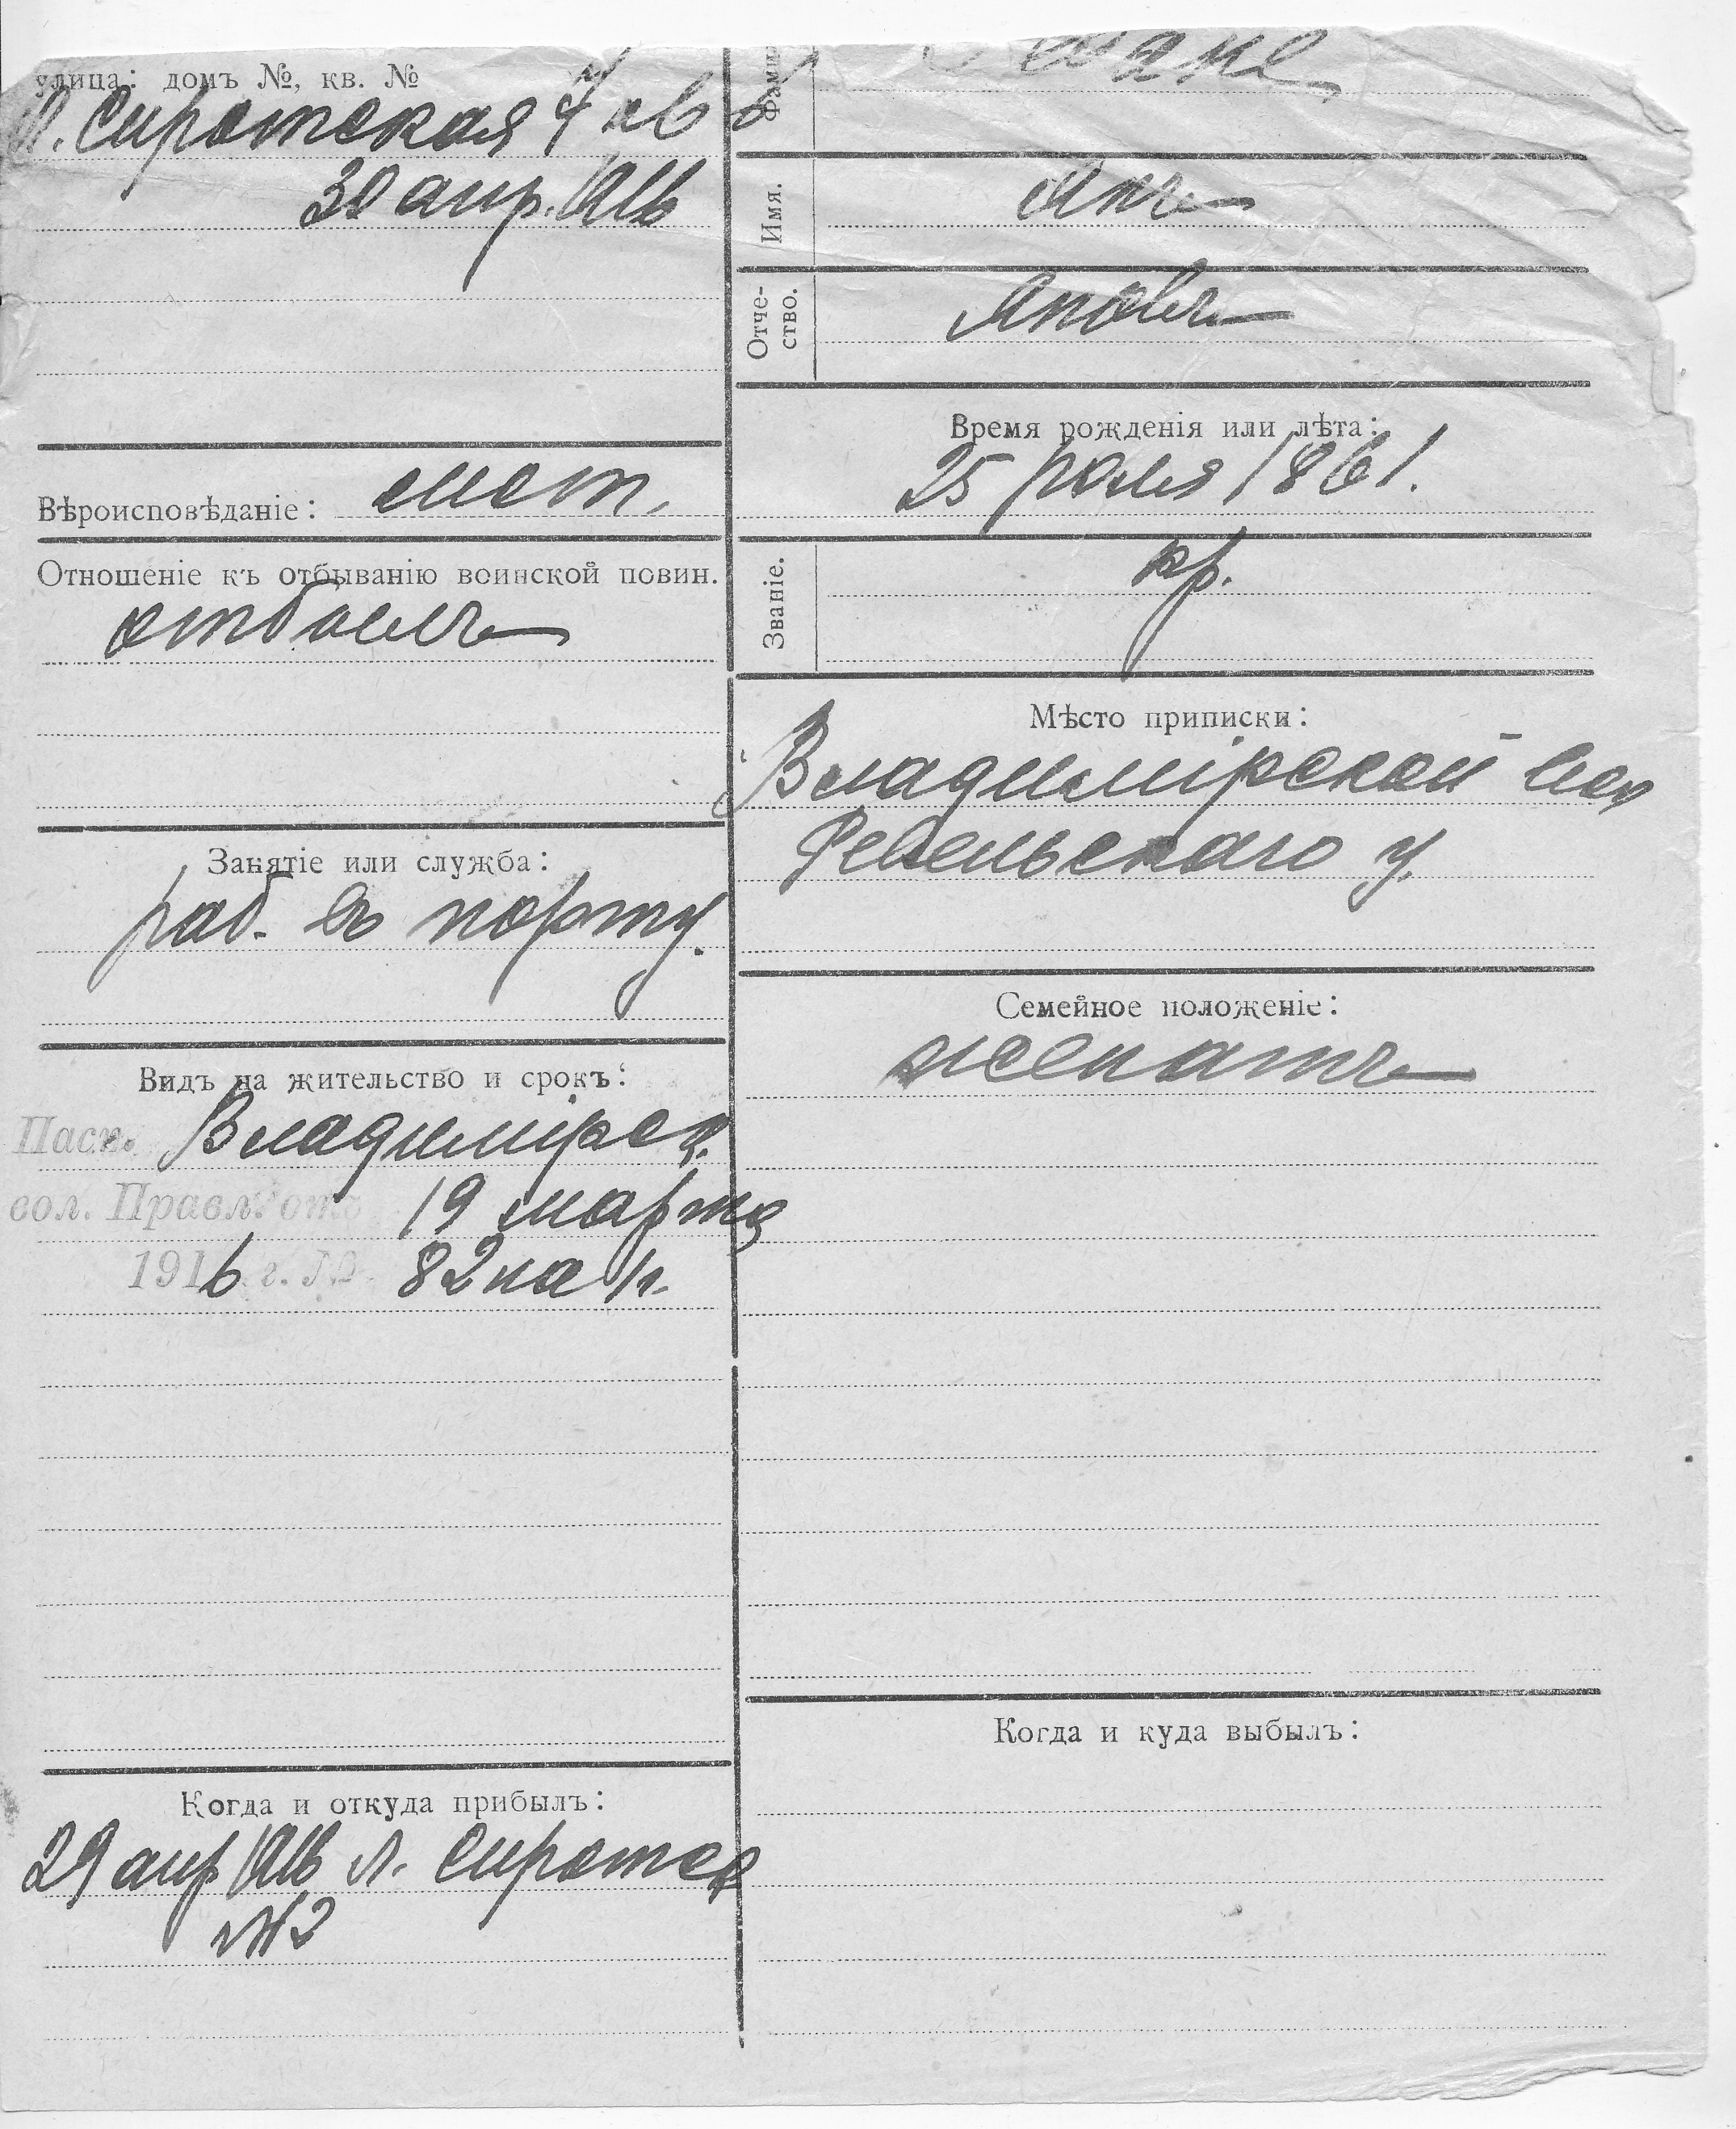 улица: домъ №, кв. №
Сиротская 4 кв 6
30 апр. 1916
Вѣроисповѣданіе: лют.
Отношеніе къ отбыванію воинской повин.
отбылъ
Занятіе или служба:
раб. въ порту.
Видъ на жительство и срокъ:
Пасп. Владимірск.
вол. Правл. отъ 19 марта
1916 г. № 82 на 1 г.
Когда и откуда прибылъ:
29 апр 1916 Л. Сиротск
№ 2
Имя. Янъ
Отче-
ство. Яновъ
Время рожденія или лѣта:
25 1861.
Званіе. кр.
Мѣсто приписки:
Владимірской вол
Ревельскаго у.
Семейное положеніе:
женатъ
Когда и куда выбылъ: